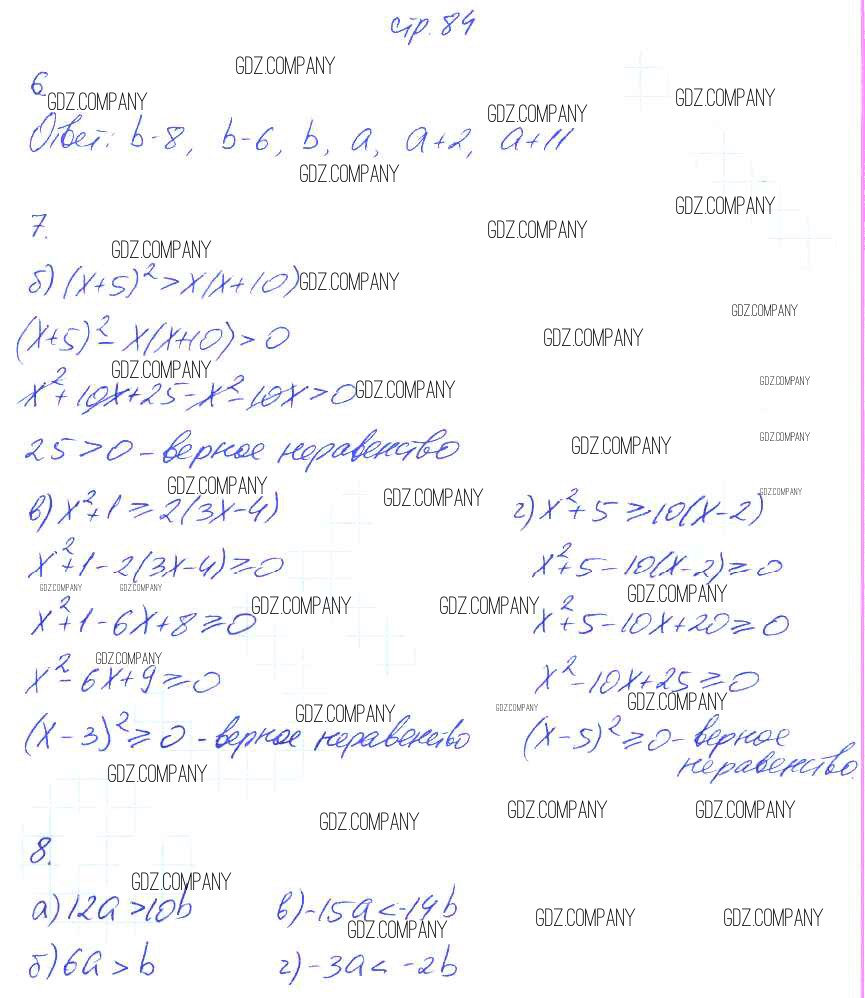 стр. 84
GDZ.COMPANY
6
GDZ.COMPANY GDZ.COMPANY GDZ.COMPANY
Ответ: b-8, b-6, b, a, a+2, a+11
GDZ.COMPANY
GDZ.COMPANY
7. GDZ.COMPANY
GDZ.COMPANY
б) (x+5)²>x(x+10) GDZ.COMPANY
GDZ.COMPANY
(x+5)²-x(x+10)>0 GDZ.COMPANY
GDZ.COMPANY GDZ.COMPANY
x²+10x+25-x²-10x>0 GDZ.COMPANY
25>0-верное неравенство GDZ.COMPANY GDZ.COMPANY
GDZ.COMPANY GDZ.COMPANY GDZ.COMPANY
в) x²+1⩾2(3x-4) г) x²+5⩾10(x-2)
x²+1-2(3x-4)⩾0 x²+5-10(x-2)⩾0
GDZ.COMPANY GDZ.COMPANY GDZ.COMPANY GDZ.COMPANY GDZ.COMPANY
x²+1-6x+8⩾0 x²+5-10x+20⩾0
GDZ.COMPANY
x²-6x+9⩾0 x²-10x+25⩾0
GDZ.COMPANY GDZ.COMPANY GDZ.COMPANY
(x-3)²⩾0-верное неравенство (x-5)²⩾0-верное
неравенство.
GDZ.COMPANY
GDZ.COMPANY GDZ.COMPANY GDZ.COMPANY
8.
GDZ.COMPANY
а) 12a>10b в) -15a<-14b
GDZ.COMPANY GDZ.COMPANY GDZ.COMPANY
б) 6a>b г) -3a<-2b